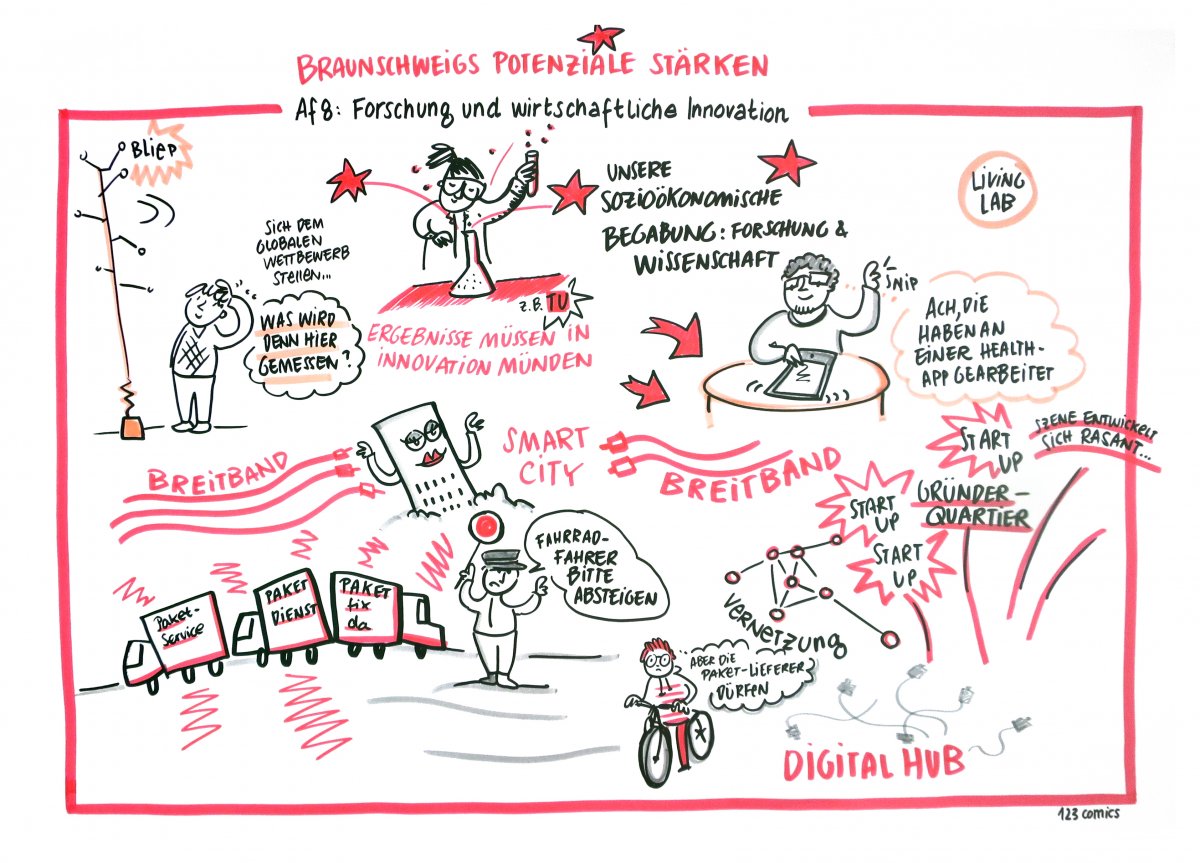 BRAUNSCHWEIGS POTENZIALE STÄRKEN
Af8: Forschung und wirtschaftliche Innovation
BLIEP
SICH DEM
GLOBALEN
WETTBEWERB
STELLEN...
WAS WIRD
DENN HIER
GEMESSEN?
Z.B. TU
ERGEBNISSE MÜSSEN IN
INNOVATION MÜNDEN
UNSERE
SOZIOÖKONOMISCHE
BEGABUNG: FORSCHUNG &
WISSENSCHAFT
LIVING
LAB
SNIP
ACH, DIE
HABEN AN
EINER HEALTH-
APP GEARBEITET
BREITBAND
SMART
CITY
BREITBAND
START
UP
SZENE ENTWICKELT
SICH RASANT...
START
UP
GRÜNDER-
QUARTIER
START
UP
PAKET-
SERVICE
PAKET
DIENST
PAKET
fix
da
FAHRRAD-
FAHRER
BITTE
ABSTEIGEN
VERNETZUNG
ABER DIE
PAKET-LIEFERER
DÜRFEN
DIGITAL HUB
123 comics